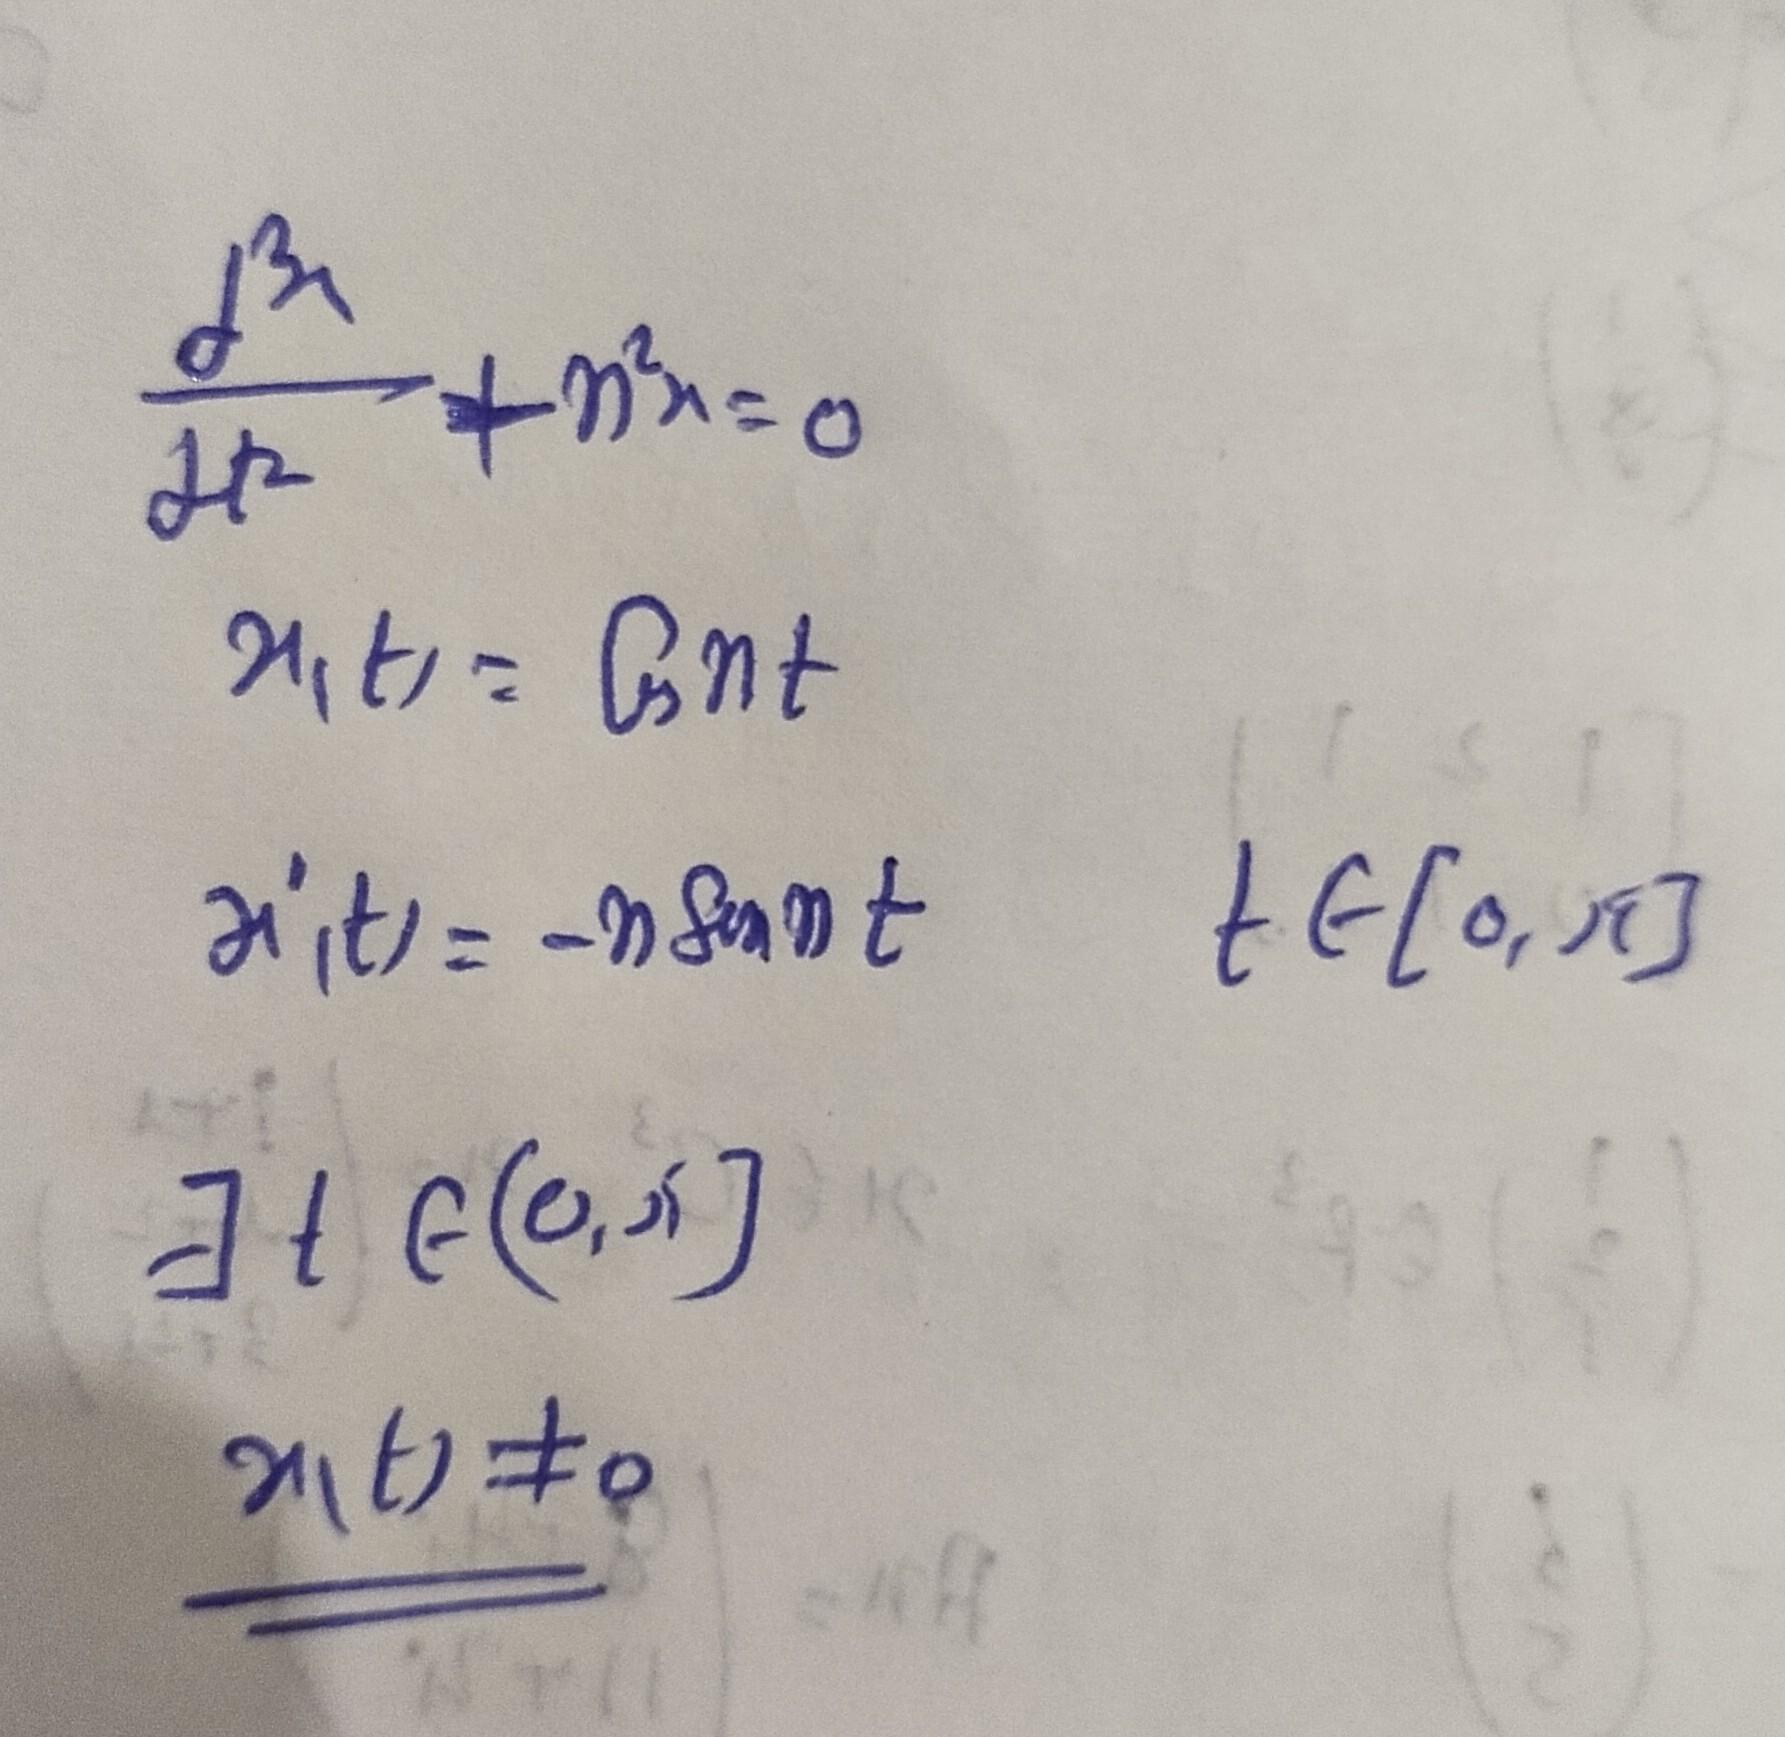 d²x/dt² + n²x = 0
x₁(t) = Cos nt
x'₁(t) = -n Sin nt t ∈ [0, π]
∃ t ∈ (0, π]
x₁(t) ≠ 0